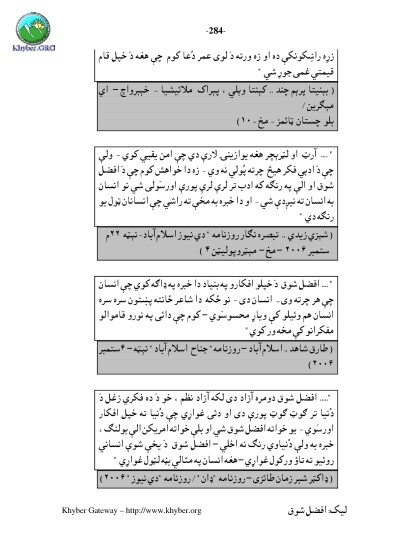 -284-
Khyber.ORG
زړه راښکونکې ده او زه ورته دَ لوی عمر دُعا کوم چې هغه دَ خپل قام
قیمتي غمی جوړ شي "
( بېنیتا پریم چند .. کیټنا ویلي ، پېراک ملائیشیا - خپرواچ – اې
مېګزین /
بلوچستان ټائمز- مخ-۱۰)
"... آرټ او لټرېچر هغه یوازینۍ لارې دي چې امن یقیني کوي - ولې
چې دَ ادبي فکر هیڅ چرته پُولې نه وي - زه دا خواهش کوم چې دَ افضل
شوق او الې په رنګه که ادب تر لرې لرې پورې اورسولی شي نو انسان
به انسان ته نیږدې شي - او دا خبره به مخې ته راشي چې انسانان ټول یو
رنګه دي "
( شېزي زیدي .. تبصره نګار روزنامه "دي نیوز اسلام آباد- نېټه ۲۲م
ستمبر ۲۰۰۶ – مخ – مېټروپولیټن ۴)
"... افضل شوق دَ خپلو افکارو په بنیاد دا خبره په ډاګه کوي چې انسان
چې هر چرته وي - انسان دی - نو ځکه دا شاعر ځانته پښتون سره سره
انسان هم وئیلو کې ویاړ محسوسوي – کوم چې دائی په نورو قاموالو
مفکرانو کې مخه ور کوي"
( طارق شاهد .. اسلام آباد –روزنامه "جناح اسلام آباد" نېټه –۶ ستمبر
۲۰۰۶)
".... افضل شوق دومره آزاد دی لکه آزاد نظم ، خو دَ ده فکري زغل دَ
دُنیا تر ګوټ ګوټ پورې دی او دئی غواړي چې دُنیا ته خپل افکار
اورسَوي - یو خواته افضل شوق شي او بلې خواته امریکن الې یولنګ ،
خبره به ولې دُنیاوي رنګ نه اخلي – افضل شوق دَ یخې شوې انساني
روئیو ته تاؤ ورکول غواړي – هغه انسان په مثالي بڼه لټول غواړي "
( ډاکټر شېر زمان طائزی – روزنامه "ډان" / روزنامه "دي نیوز" ۲۰۰۶)
Khyber Gateway – http://www.khyber.org
لیک: افضل شوق